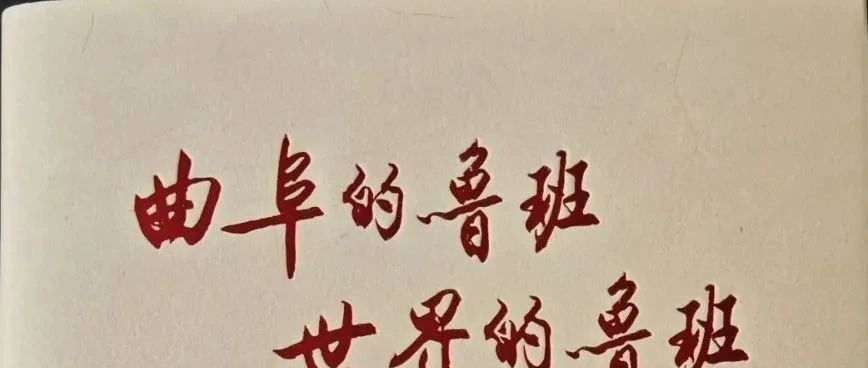 曲阜的鲁班
世界的鲁班